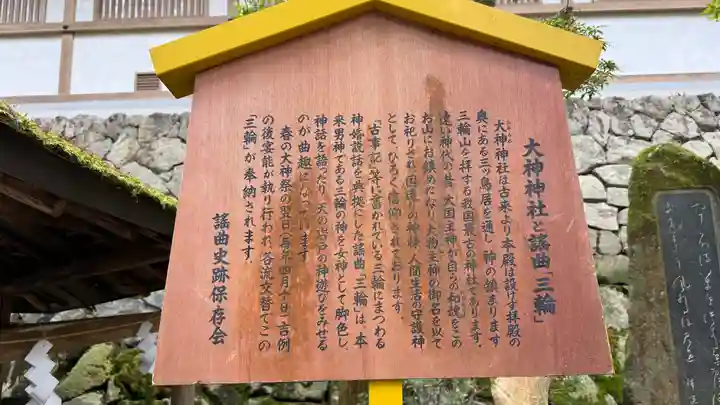 大神神社と謡曲「三輪」
大神神社は古来より本殿は設けず拝殿の
奥にある三ッ鳥居を通し、神の鎮まります
三輪山を拝する我国最古の神社であります。
遠い神代の昔、大国主神が自らの和魂をこの
お山にお鎮めになり、大物主神の御名を以て
お祀りされ、国造りの神様、人間生活の守護神
として、ひろく信仰されております。
「古事記」等に書かれている三輪にまつわる
神婚説話を典拠にした謡曲「三輪」は、本
来男神である三輪の神を女神として脚色し、
神話を語ったり、天の岩戸の神遊びをみせる
のが曲趣となっています。
春の大神祭の翌日（毎年四月十日）、吉例
の後宴能が執り行われ、各流交替でこの
「三輪」が奉納されます。
謡曲史跡保存会